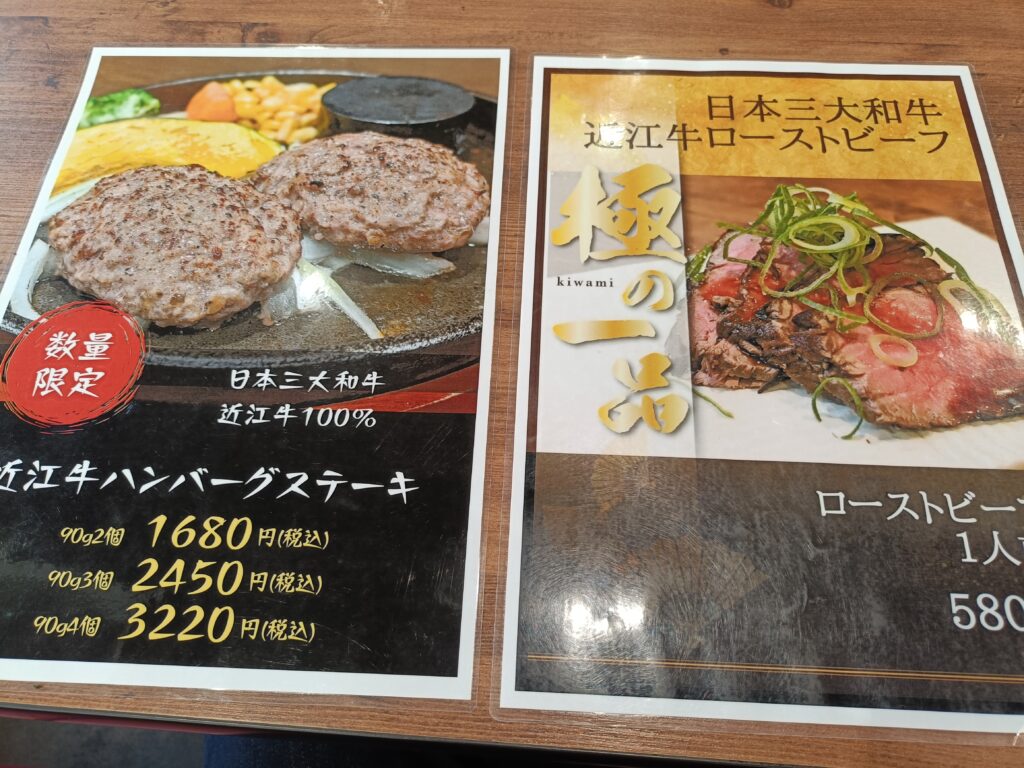 数量
限定
日本三大和牛
近江牛100%
近江牛ハンバーグステーキ
90g2個 1680円(税込)
90g3個 2450円(税込)
90g4個 3220円(税込)
日本三大和牛
近江牛ローストビーフ
極の一品
kiwami
ローストビーフ
1人
580